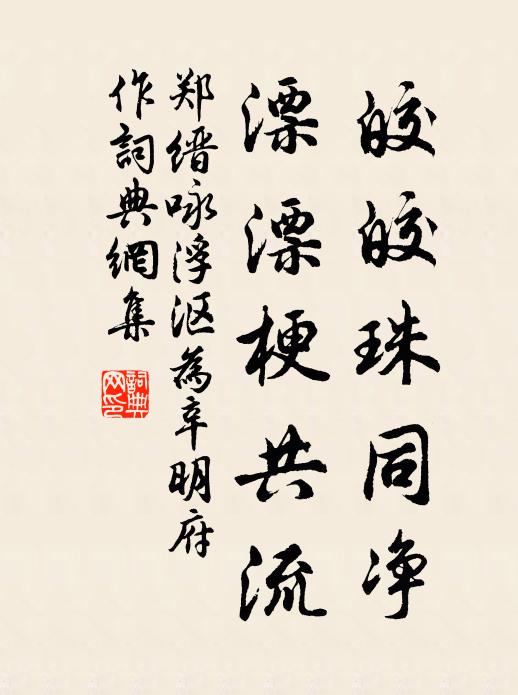 皎皎珠同净
漂漂梗共流
郑缙咏浮沤為辛明府
作詞典網集
詞典
网印